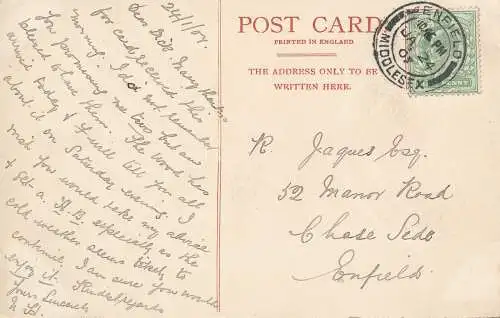 24/1/07.
Dear Dick. Many thanks
for card received this
morning. I do not remember
you promising me two but am
pleased to have them. The wood has
arrived today & I will tell you all
about it on Saturday evening. I
wish you would take my advice
& get a. especially as the
cold weather seems likely to
continue. I am sure you would
enjoy it. Kind regards
Yours Sincerely
POST CARD
PRINTED IN ENGLAND
THE ADDRESS ONLY TO BE
WRITTEN HERE.
ENFIELD
MIDDLESEX
PM
JA 24
07
R. Jaques Esq.
52 Manor Road
Chase Side
Enfield.